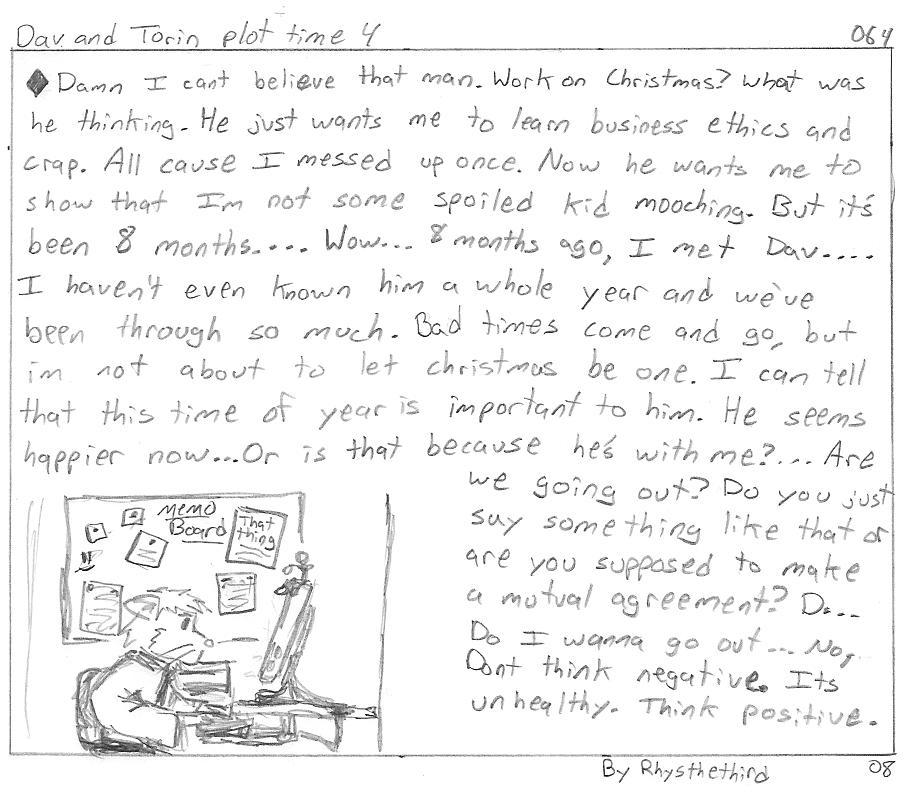 Dav and Torin plot time 4
064
Damn I cant believe that man. Work on Christmas? What was
he thinking. He just wants me to learn business ethics and
crap. All cause I messed up once. Now he wants me to
show that Im not some spoiled kid mooching. But it's
been 8 months.... Wow... 8 months ago, I met Dav....
I haven't even known him a whole year and we've
been through so much. Bad times come and go, but
im not about to let christmas be one. I can tell
that this time of year is important to him. He seems
happier now...Or is that because he's with me?... Are
we going out? Do you just
say something like that or
are you supposed to make
a mutual agreement? D...
Do I wanna go out... No,
Dont think negative. Its
unhealthy. Think positive.
Memo
Board
That
thing
By Rhysthethird
08